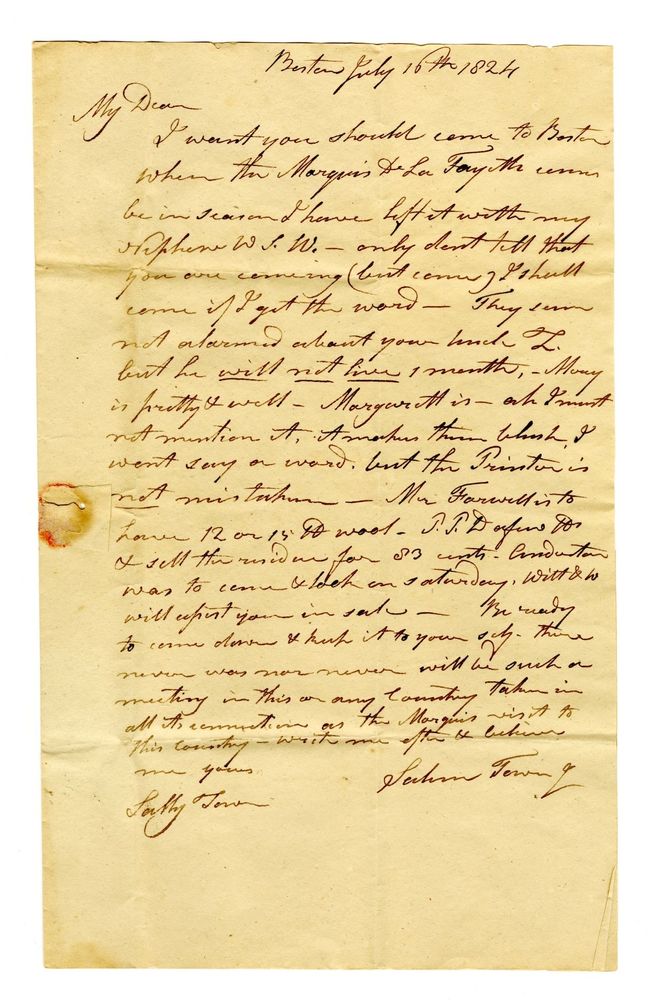 Boston July 16th 1824
My Dear
I want you should come to Boston
when the Marquis De La Fayette comes
be in season I have left it with my
Nephew W S. W. – only dont tell that
you are comeing (but come) I shall
come if I get the word – They seem
not alarmed about your Uncle Z.
but he will not live 1 month, – Mary
is pretty & well – Margarett is – ah I must
not mention it, it makes them blush, I
wont say a word. but the Printer is
not mistaken – Mr Farwell is to
have 12 or 15 lb wool – S. S. D a few lbs
& sell the residue for 83 cents –
was to come & look on saturday. Will & W
will assist you in sale – Be ready
to come down & keep it to your self – there
never was nor never will be such a
meeting in this or any Country taken in
all its connection as the Marquis visit to
this Country – write me after & believe
me yours
Salem Town Jr
Sally Town